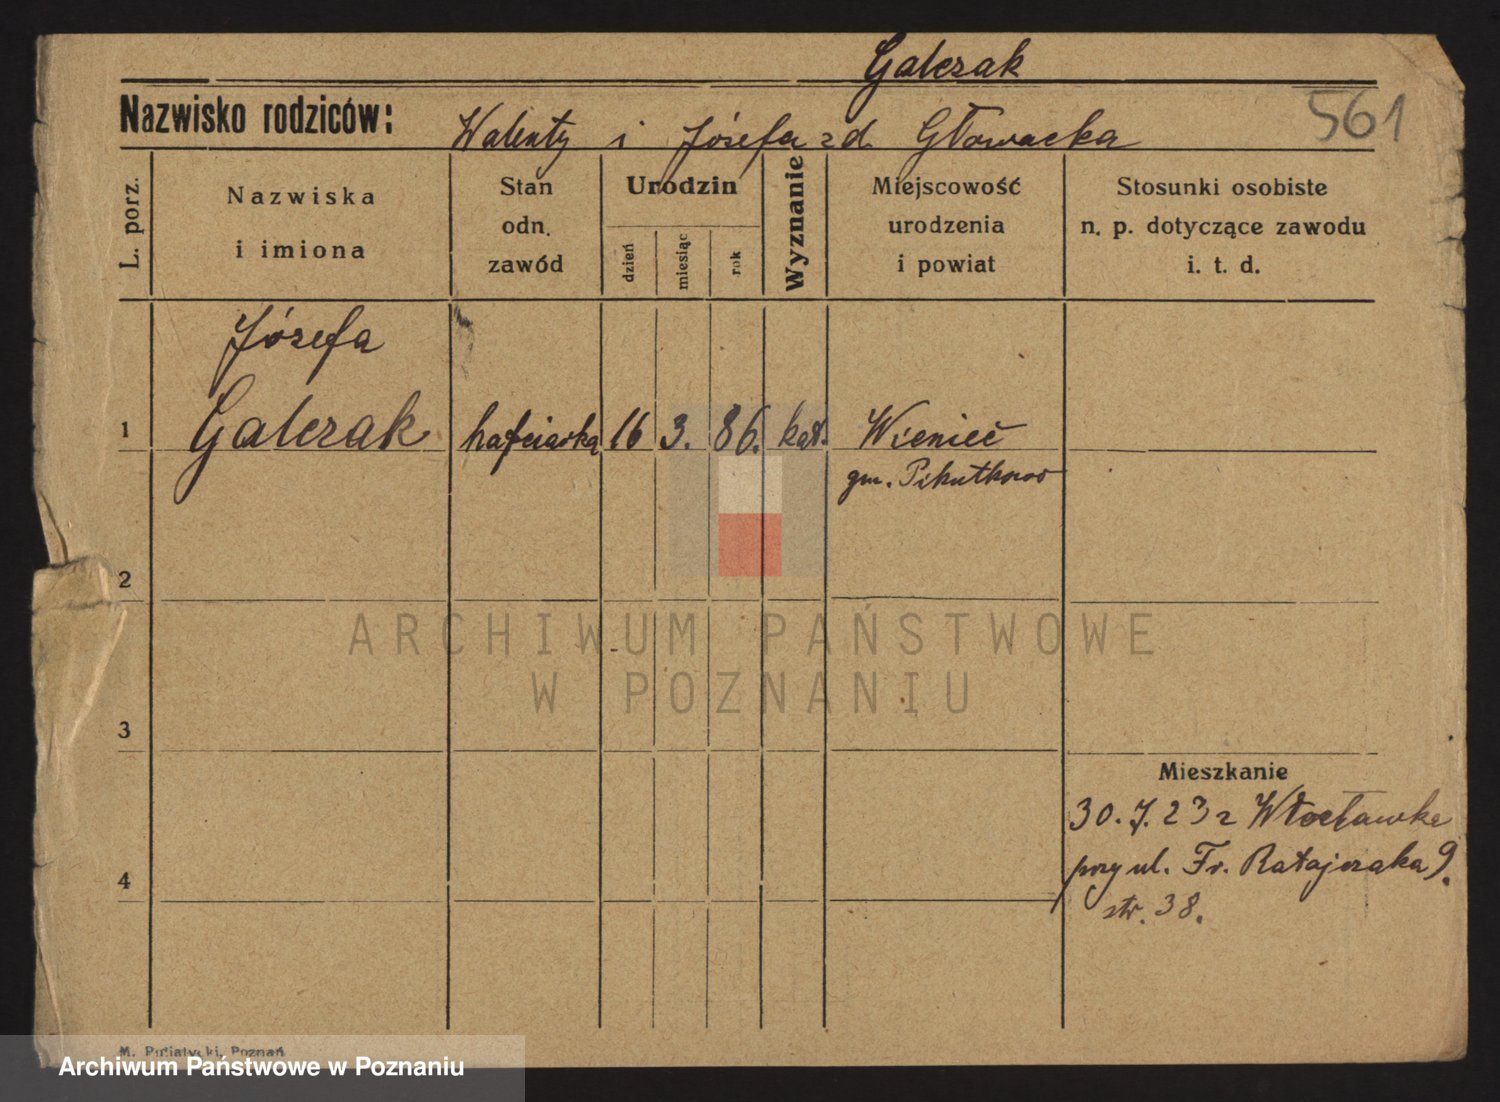 Galczak
561
Nazwisko rodziców: Walenty i Józefa zd. Głowacka
L. porz.
Nazwiska
i imiona
Stan
odn.
zawód
Urodzin
dzień
miesiąc
rok
Wyznanie
Miejscowość
urodzenia
i powiat
Stosunki osobiste
n. p. dotyczące zawodu
i. t. d.
Józefa
1 Galczak hafciarka 16 3. 86. kat. Wieniec
gm. Pikutkowo
2
ARCHIWUM PAŃSTWOWE
W POZNANIU
3
Mieszkanie
30.7.23 z Włocławka
przy ul. Fr. Ratajczaka 9.
4
str. 38.
M. Putiatycki, Poznań
Archiwum Państwowe w Poznaniu